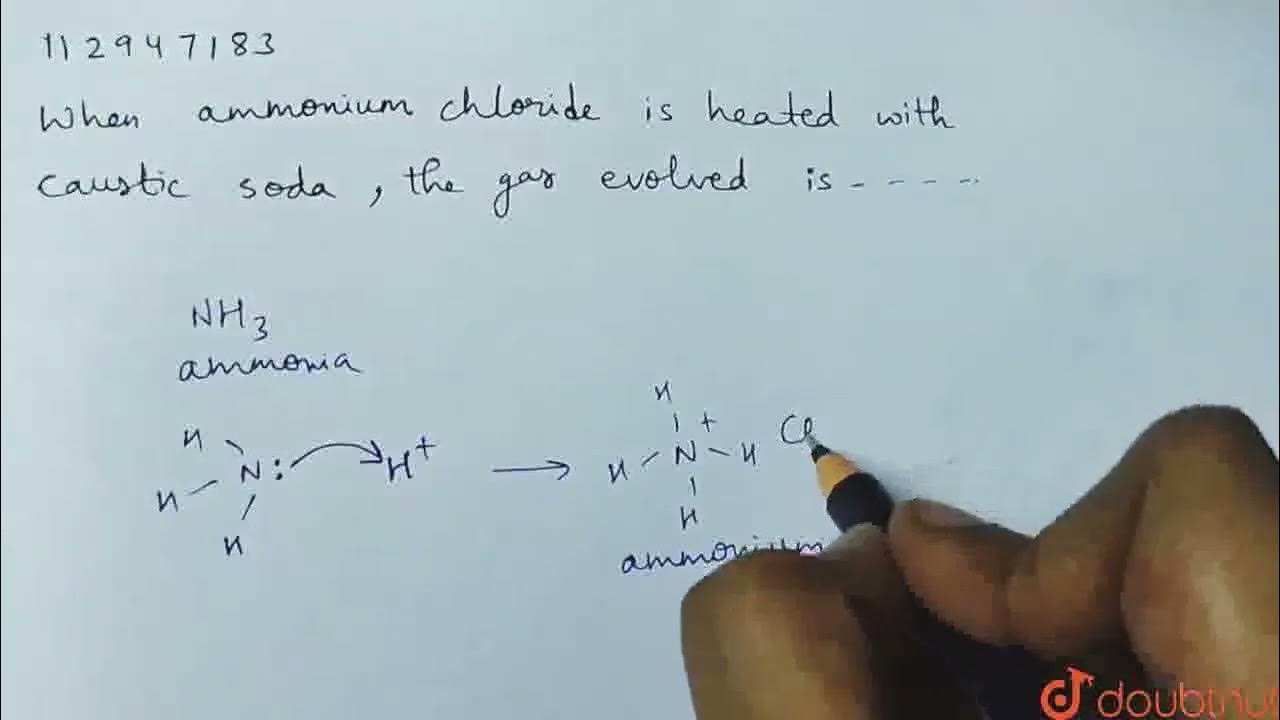 112947183
When ammonium chloride is heated with
caustic soda, the gas evolved is - - - - -
NH3
ammonia
H
N: H+
H
H
→
H
+
H N H Cl
H
ammonium
doubtnut